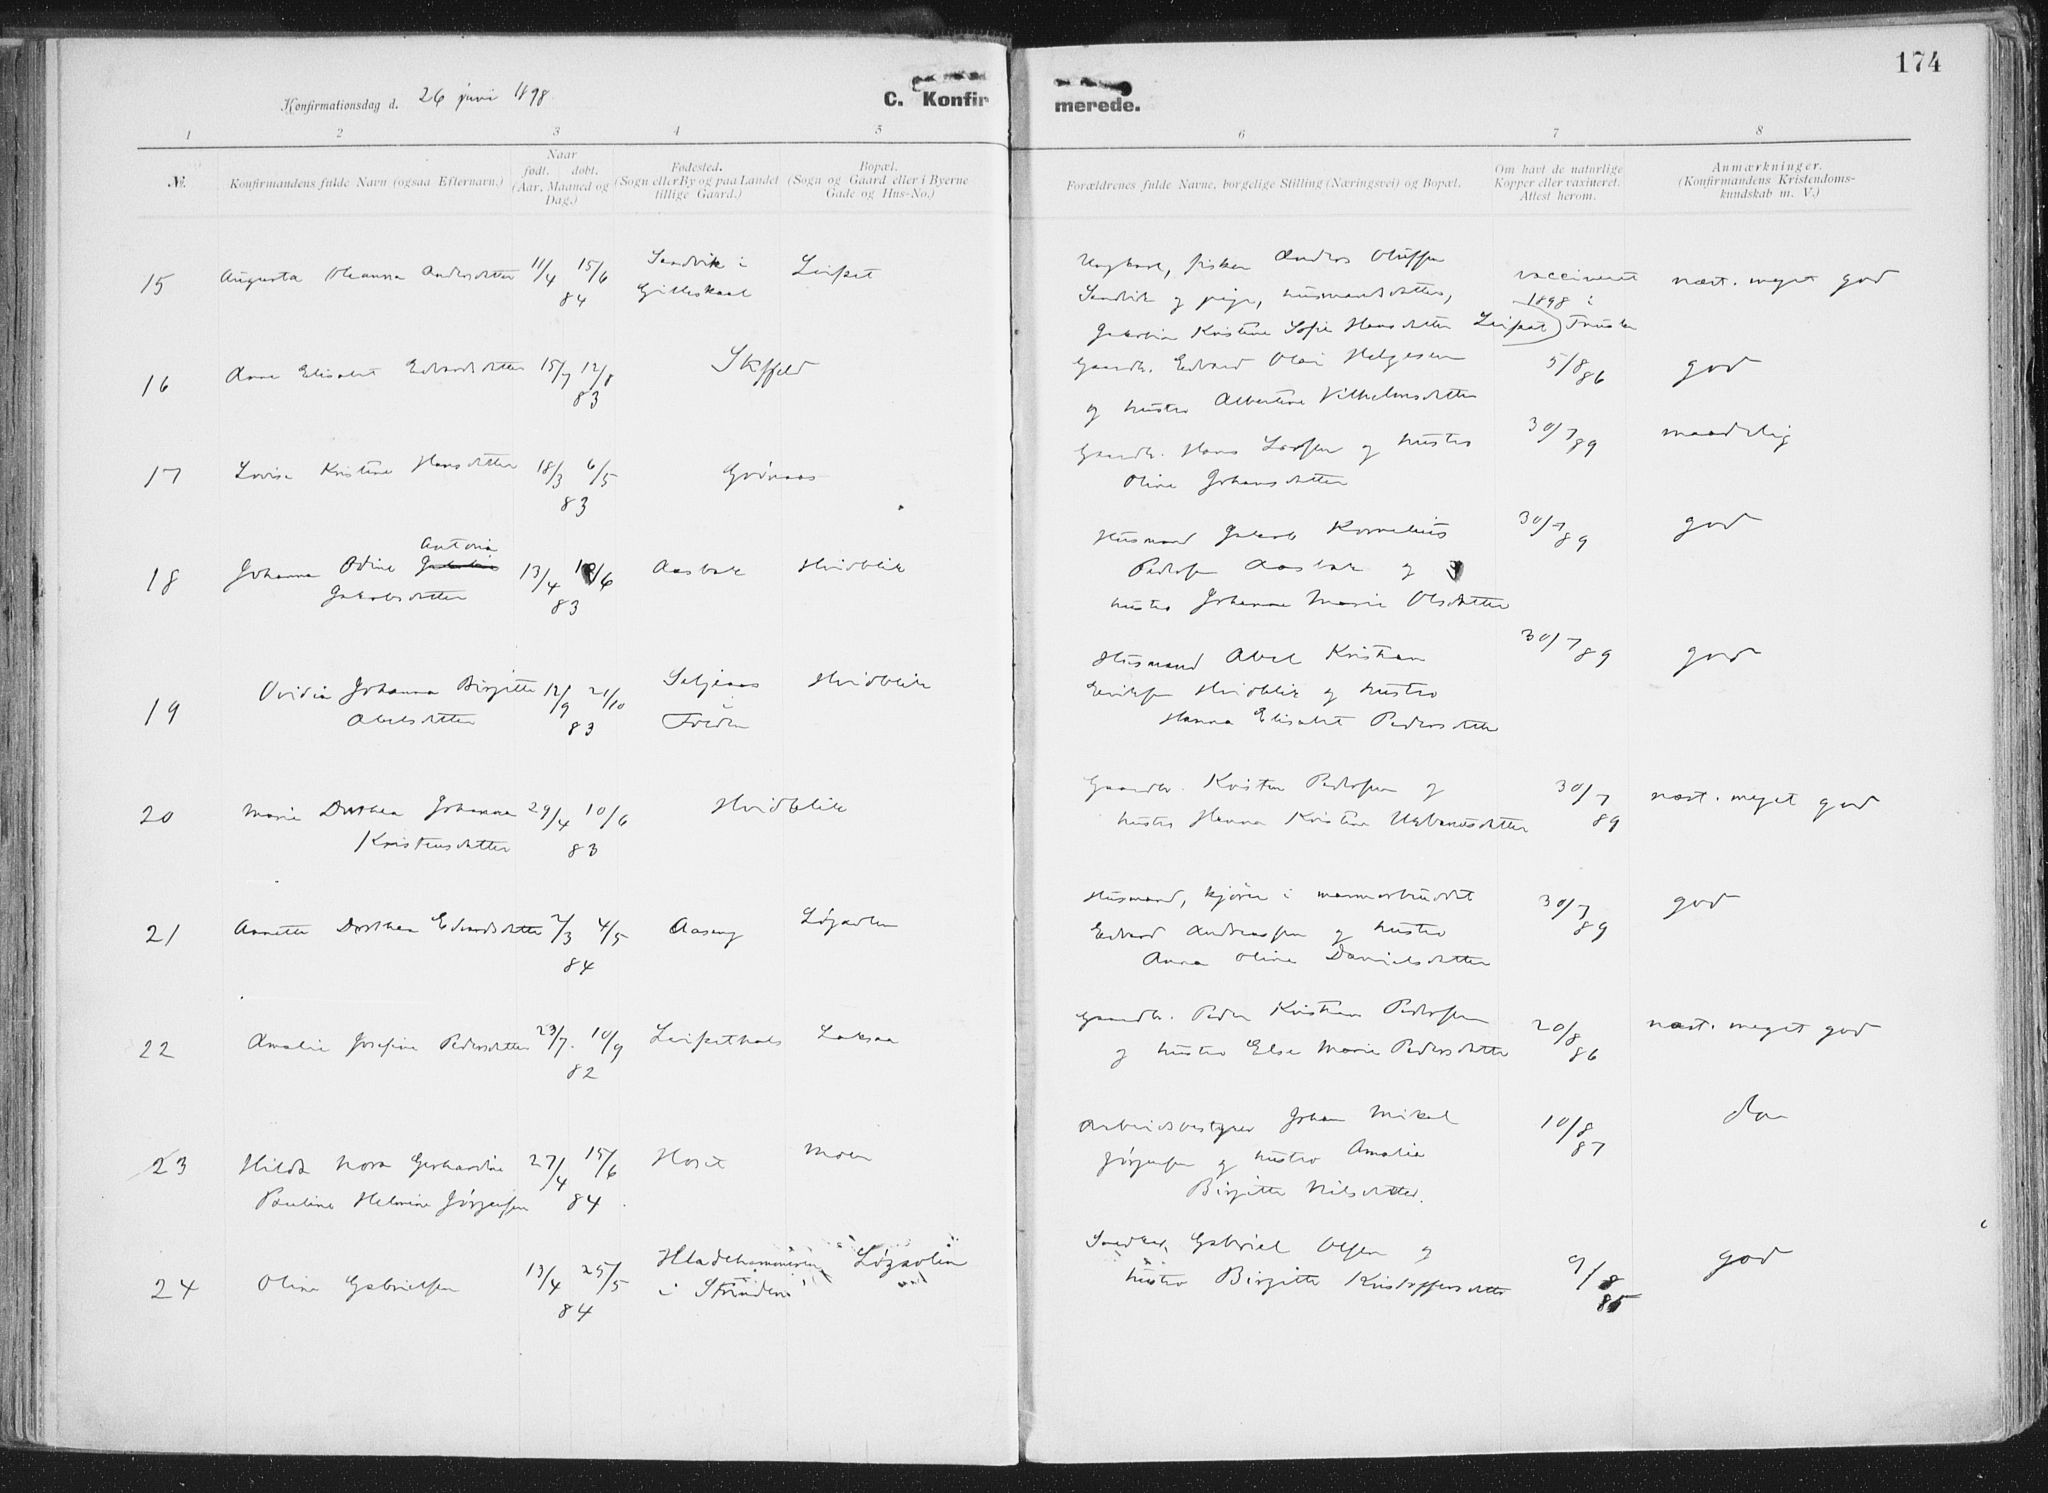 174
Konfirmationsdag d. 26 juni 1898
C. Konfirmerede.
1 2 3 4 5 6 7 8
№.
Konfirmandens fulde Navn (ogsaa Efternavn.)
Naar født. døbt. (Aar, Maaned og Dag.)
Fødested. (Sogn eller By og paa Landet tillige Gaard.)
Bopæl. (Sogn og Gaard eller i Byerne Gade og Hus-No.)
Forældrenes fulde Navne, borgelige Stilling (Næringsvei) og Bopæl.
Om havt de naturlige Kopper eller vaxineret. Attest herom.
Anmærkninger. (Konfirmandens Kristendomskundskab m. V.)
15 Augusta Oleanna Andersdatter 11/4 15/6 84 Sandvik i Gilleskaal Leifset
Ungkarl, fisker Anders Oluffen
Sandvik og pige, husmandsdatter,
Jakobia Kristine Sofie Hansdatter Leifset
vaccineret 1898 i næst. meget god
16 Anne Elisabet Edvardsdatter 15/7 12/8 83
Gaardb. Edvard Olai Helgesen
og hustro Albertine Vilhelmsdatter
5/8 86 god
17 Lovise Kristine Hansdatter 18/3 6/5 83
Gaardb. Hans Larsen og hustro
Oline Johansdatter
30/7 89 maadelig
18 Johanna Odine Antonia
Jakobsdatter 13/4 83 Aasbak Hvidblik
Husmand Jakob Kornelius
Pedersen Aasbak og
hustro Johanna Marie Olsdatter
30/7 89 god
19 Ovidia Johanna Birgitte
Abelsdatter 12/9 21/10 83 Seljeaas i Hvidblik
Husmand Abel Kristian
Eriksen Hvidblik og hustro
Hanna Elisabet Pedersdatter
30/7 89 god
20 Marie Dorthea Johanna
Kristensdatter 29/4 10/6 83 Hvidblik
Gaardb. Kristen Pedersen og
hustro Hanna Kristine Urbanusdatter
30/7 89 næst. meget god
21 Annette Dorthea Edvardsdatter 2/3 4/5 84 Aaseng Løgavlen
Husmand, kjører i marmorbruddet
Edvard Andreassen og hustro
Anna Oline Danielsdatter
30/7 89 god
22 Amalie Josefine Pedersdatter 23/7 10/9 82 Leifsethals Laksaa
Gaardb. Peder Kristian Pedersen
og hustro Else Marie Pedersdatter
20/8 86 næst. meget god
23 Hilda Nora Gerhardine
Pauline Helmine Jørgensen 27/4 15/6 84 Hoset Moen
Arbeidsbestyrer Johan Mikal
Jørgensen og hustro Amalie
Birgitte Nilsdatter.
10/8 87 do
24 Oline Gabrielsen 13/4 25/5 84 i Strinden Løgavlen
Snedker Gabriel Olsen og
hustro Birgitte Kristoffersdatter
9/8 85 god